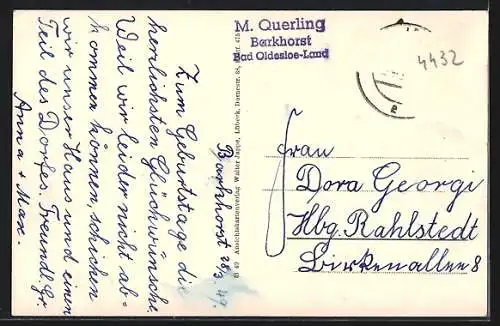 M. Querling
Barkhorst
Bad Oldesloe-Land
4432
Barkhorst 26/3. 49.
Zum Geburtstage die
herzlichsten Glückwünsche.
Weil wir leider nicht ab-
kommen können, schicken
wir unser Haus und einen
Teil des Dorfes. Freundl. Gr.
Anna + Max.
Ansichtskartenverlag Walter Jappe, Lübeck,
Frau
Dora Georgi
Hbg. Rahlstedt
Birkenallee 8